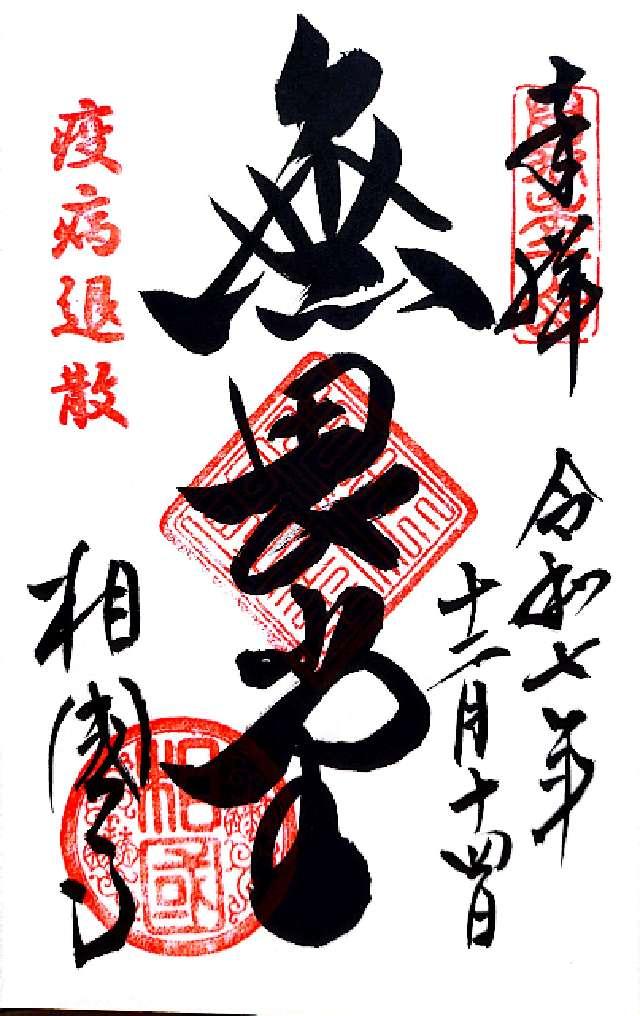 奉拝
令和七年
十二月十四日
無畏堂
疫病退散
相國寺
相国